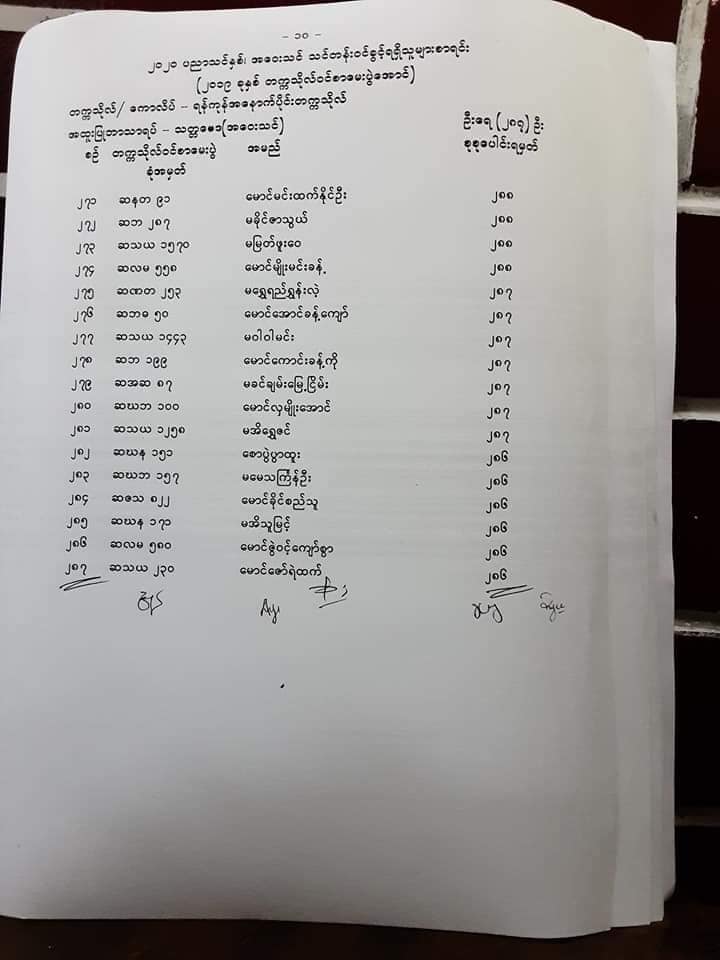 - ၁၀ -
၂၀၂၀ ပညာသင်နှစ်၊ အဝေးသင် သင်တန်းဝင်ခွင့်ရရှိသူများစာရင်း
(၂၀၁၉ ခုနှစ် တက္ကသိုလ်ဝင်စာမေးပွဲအောင်)
တက္ကသိုလ်/ ကောလိပ် - ရန်ကုန်အနောက်ပိုင်းတက္ကသိုလ်
အထူးပြုဘာသာရပ် - သတ္တဗေဒ(အဝေးသင်) ဦးရေ (၂၈၇) ဦး
စဉ် တက္ကသိုလ်ဝင်စာမေးပွဲ အမည် စုစုပေါင်းရမှတ်
ခုံအမှတ်
၂၇၁ ဆနတ ၉၁ မောင်မင်းထက်နိုင်ဦး ၂၈၈
၂၇၂ ဆဘ ၂၈၇ မခိုင်ဇာသွယ် ၂၈၈
၂၇၃ ဆသယ ၁၅၇၀ မမြတ်ဖူးဝေ ၂၈၈
၂၇၄ ဆလမ ၅၅၈ မောင်မျိုးမင်းခန့် ၂၈၈
၂၇၅ ဆဏတ ၂၅၃ မရွှေရည်ရွှန်းလဲ့ ၂၈၇
၂၇၆ ဆဘဓ ၅၀ မောင်အောင်ခန့်ကျော် ၂၈၇
၂၇၇ ဆသယ ၁၄၄၃ မဝါဝါမင်း ၂၈၇
၂၇၈ ဆဘ ၁၉၉ မောင်ကောင်းခန့်ကို ၂၈၇
၂၇၉ ဆအဆ ၈၇ မခင်ချမ်းမြေ့ငြိမ်း ၂၈၇
၂၈၀ ဆဃဘ ၁၀၀ မောင်လှမျိုးအောင် ၂၈၇
၂၈၁ ဆသယ ၁၂၅၈ မအိရွှေဇင် ၂၈၇
၂၈၂ ဆဃန ၁၅၁ စောပွဲပွာထူး ၂၈၆
၂၈၃ ဆဃဘ ၁၅၇ မမေသင်္ကြန်ဦး ၂၈၆
၂၈၄ ဆဇသ ၈၂၂ မောင်ခိုင်စည်သူ ၂၈၆
၂၈၅ ဆဃန ၁၇၁ မအိသူမြင့် ၂၈၆
၂၈၆ ဆလမ ၅၈၀ မောင်ဇွဲဝင့်ကျော်စွာ ၂၈၆
၂၈၇ ဆသယ ၂၃၀ မောင်ဇော်ရဲထက် ၂၈၆